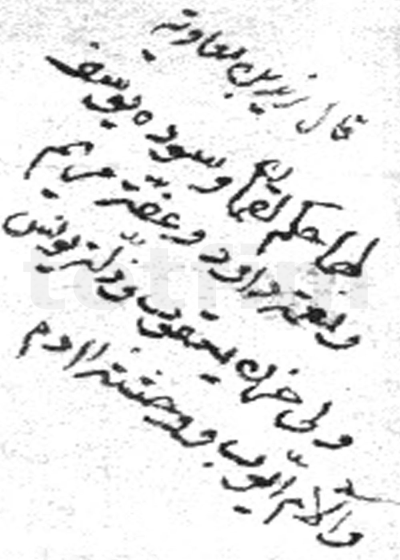 قال يزيد بن معاوية
لها حكم لقمان وصوره يوسف
ونغمة داود وعفة مريم
ولى حزن يعقوب وذلة يونس
وآلام أيوب ووحشة اادم